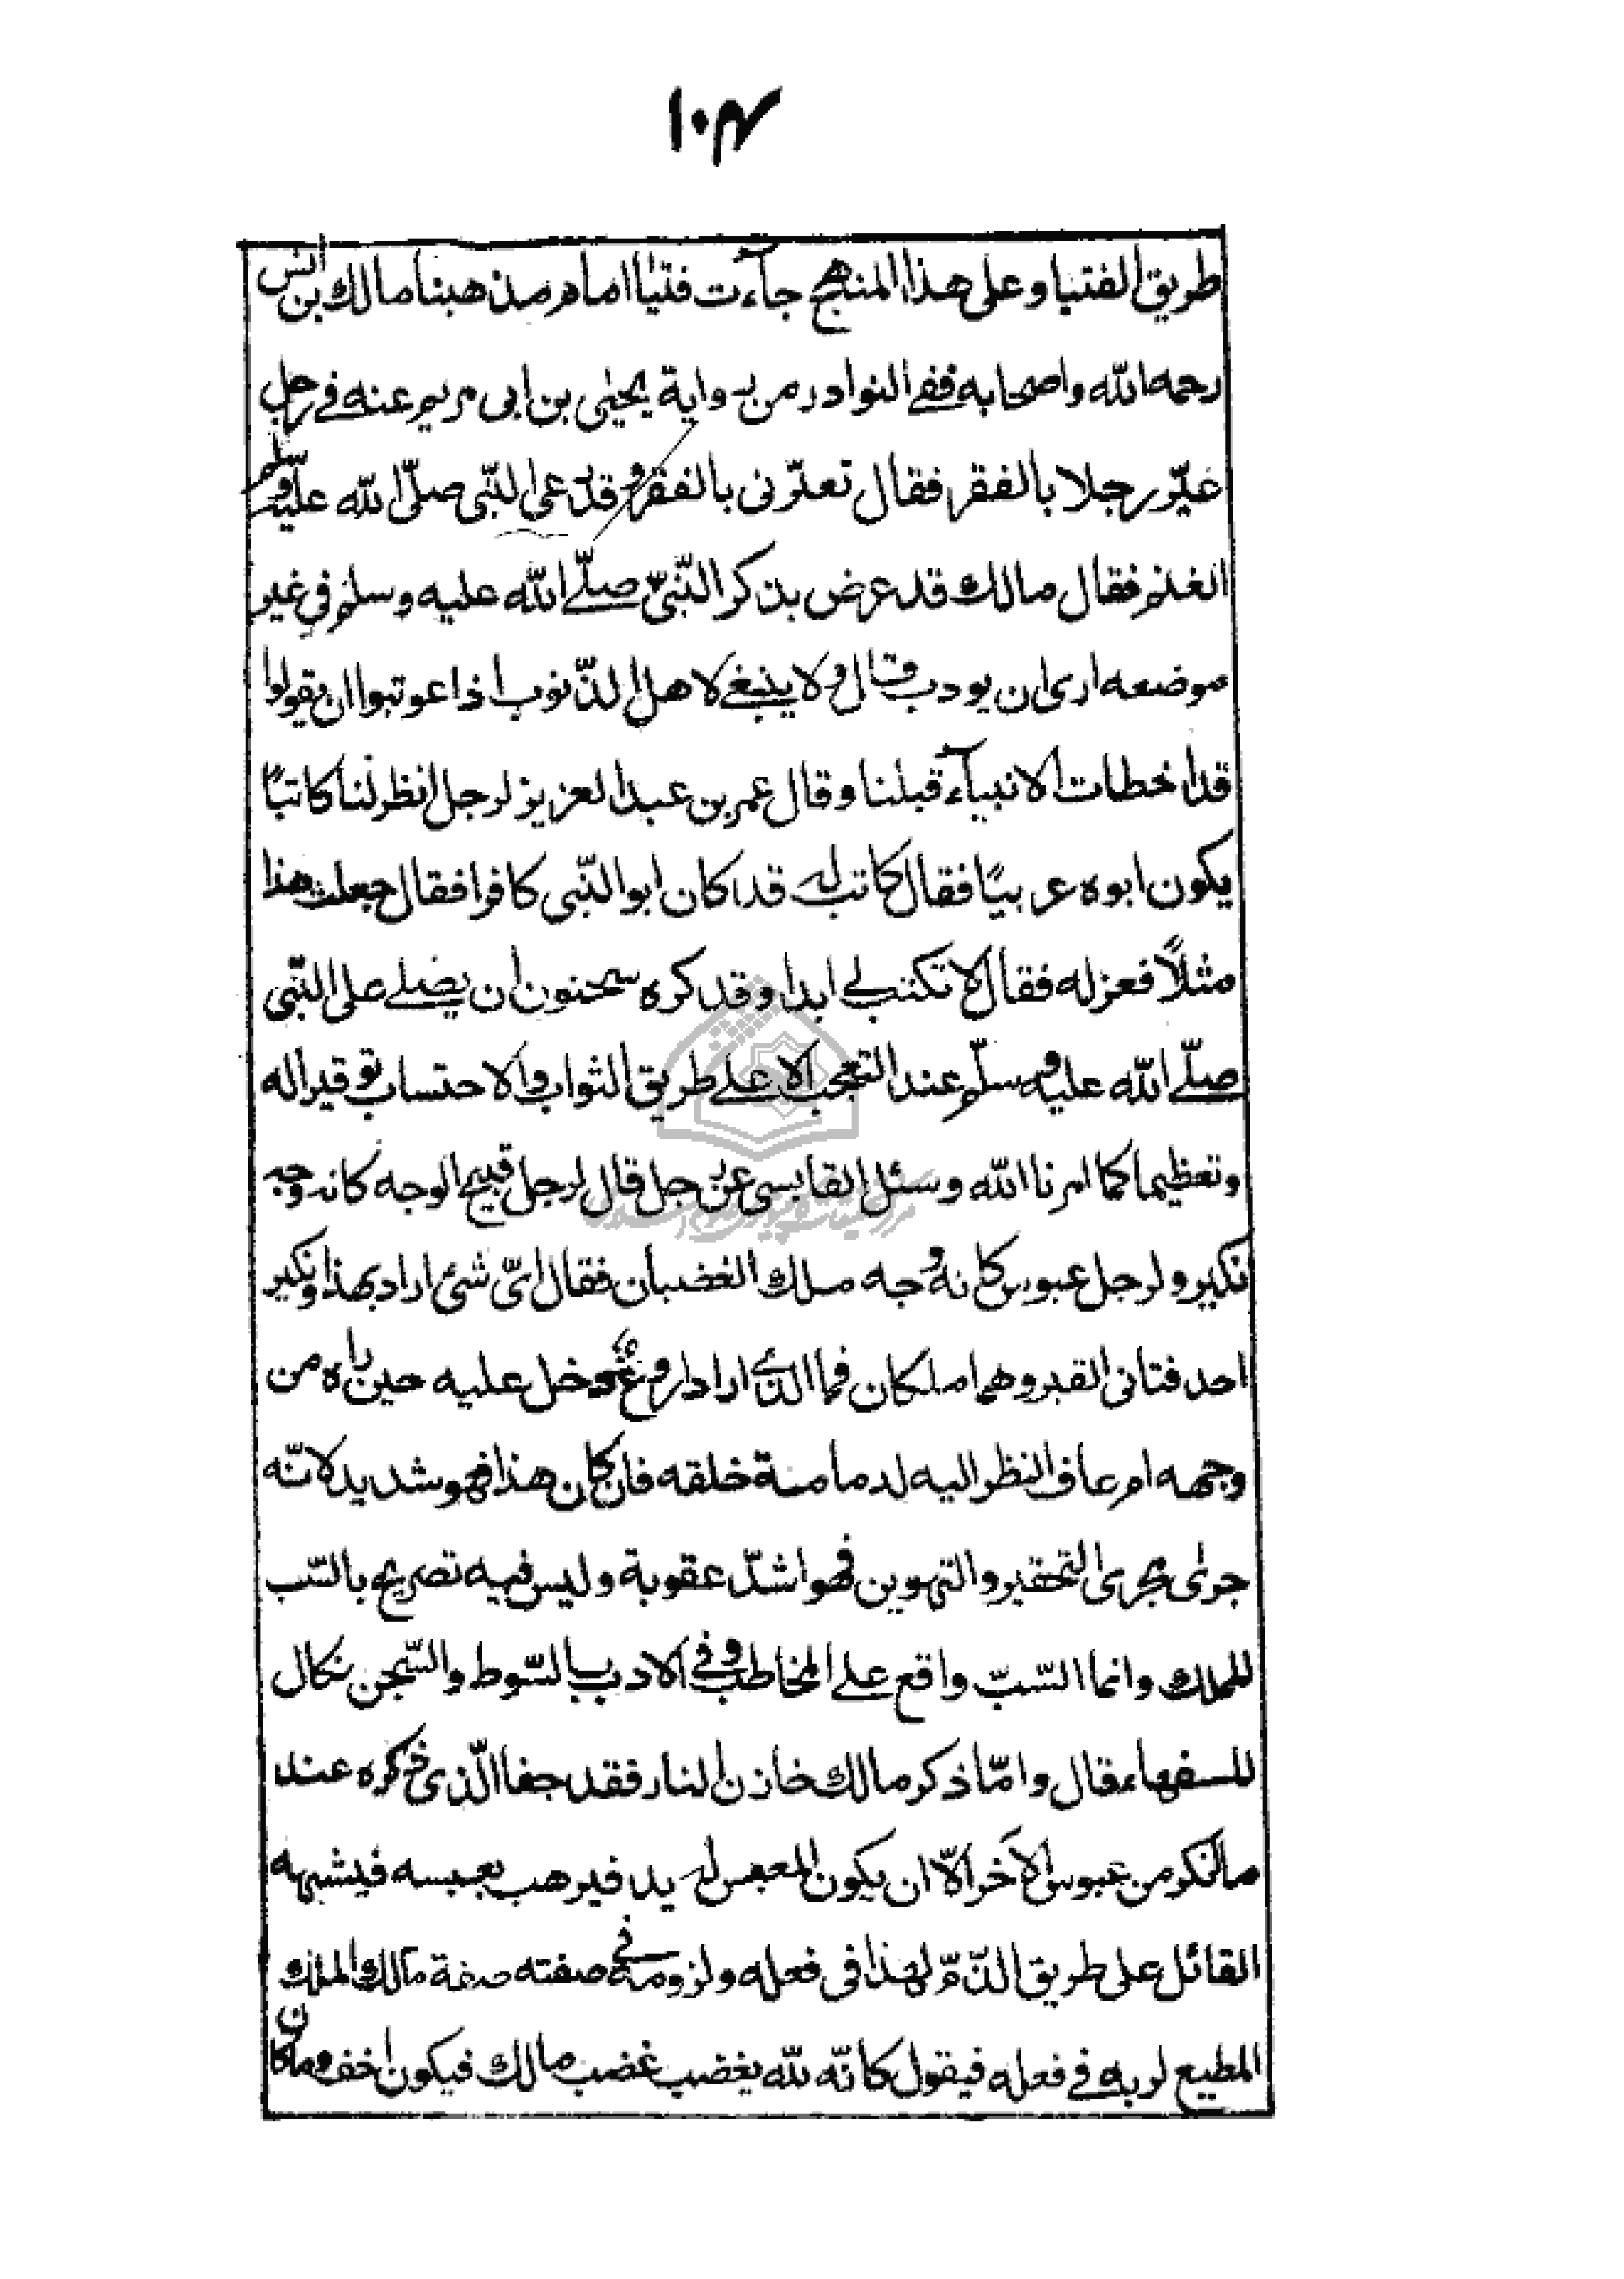 ١٠٤
طريق الفتيا وعلى هذا المنهج جآءت فتيا امام مذهبنا مالك بن انس
رحمه الله واصحابه ففے النوادر من رواية يحيٰى بن ابى مريم عنه فے رجل
عيّر رجلا بالفقر فقال تعيّرنى بالفقر وقد رعى النّبى صلّى الله عليه وسلم
الغنم فقال مالك قد عرض بذكر النّبىّ صلّے الله عليه وسلم فى غير
موضعه ارى ان يودب وقال ولا ينبغے لاهل الذّنوب اذا عوتبوا ان يقولوا
قد اخطات الانبيآء قبلنا وقال عمر بن عبد العزيز لرجل انظر لنا كاتبًا
يكون ابوه عربيًا فقال كاتب له قد كان ابو النّبى كافرا فقال جعلت هذا
مثلًا فعزله فقال لا تكتب لے ابدا وقد كره سحنون ان يصلے على النّبى
صلّے الله عليه وسلّم عند التعجب الا علے طريق الثواب والاحتساب توقيرا له
وتعظيما كما امرنا الله وسئل القابسى عن رجل قال لرجل قبيح الوجه كانه وجه
نكير ولرجل عبوس كانه وجه مـلك الغضبان فقال اىّ شئ اراد بهذا ونكير
احد فتانى القبر وهما ملكان فما الذے اراد اروع دخل عليه حين راه من
وجهه ام عاف النظر اليه لدمامـة خلقه فان كان هذا فهو شديد لانّه
جرٰى مجرى التحقير والتهوين فهو اشدّ عقوبة وليس فيه تصريح بالسّب
للملك وانما السّبّ واقع علے المخاطب وفى الادب بالسّوط والسّجن نكال
للسفهاء قال وامّا ذكر مالك خازن النار فقد جفا الّذى ذكره عند
ما انكر من عبوس الآخر الّا ان يكون المعبس له يد فيرهب بعبسه فيشبهه
القائل على طريق الذّمّ لهذا فى فعله ولزومه فے صفته صفة مالك الملك
المطيع لربه فے فعله فيقول كانّه لله يغضب غضب مالك فيكون اخف وما كان